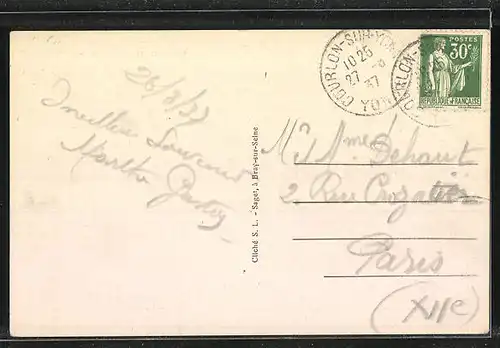 26/8/37
Meilleurs Souvenirs
Marthe
Cliché S. L. - Saget, à Bray-sur-Seine
COURLON-SUR-YONNE
10 25
27 -8
37
POSTES
30c
RÉPUBLIQUE FRANÇAISE
M. & Mme Dehaut
2 Rue Crozatier
Paris
(XIIe)